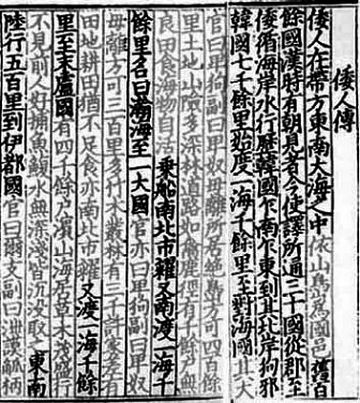 倭人傳
倭人在帶方東南大海之中依山㠀爲國邑舊百
餘國漢時有朝見者今使譯所通三十國從郡至
倭循海岸水行歷韓國乍南乍東到其北岸狗邪
韓國七千餘里始度一海千餘里至對海國其大
官曰卑狗副曰卑奴母離所居絶㠀方可四百餘
里土地山險多深林道路如禽鹿徑有千餘戶無
良田食海物自活乗船南北市糴又南渡一海千
餘里名曰瀚海至一大國官亦曰卑狗副曰卑奴
母離方可三百里多竹木叢林有三千許家差有
田地耕田猶不足食亦南北市糴又渡一海千餘
里至末盧國有四千餘戶濵山海居草木茂盛行
不見前人好捕魚鰒水無深淺皆沉沒取之東南
陸行五百里到伊都國官曰爾支副曰泄謨觚柄